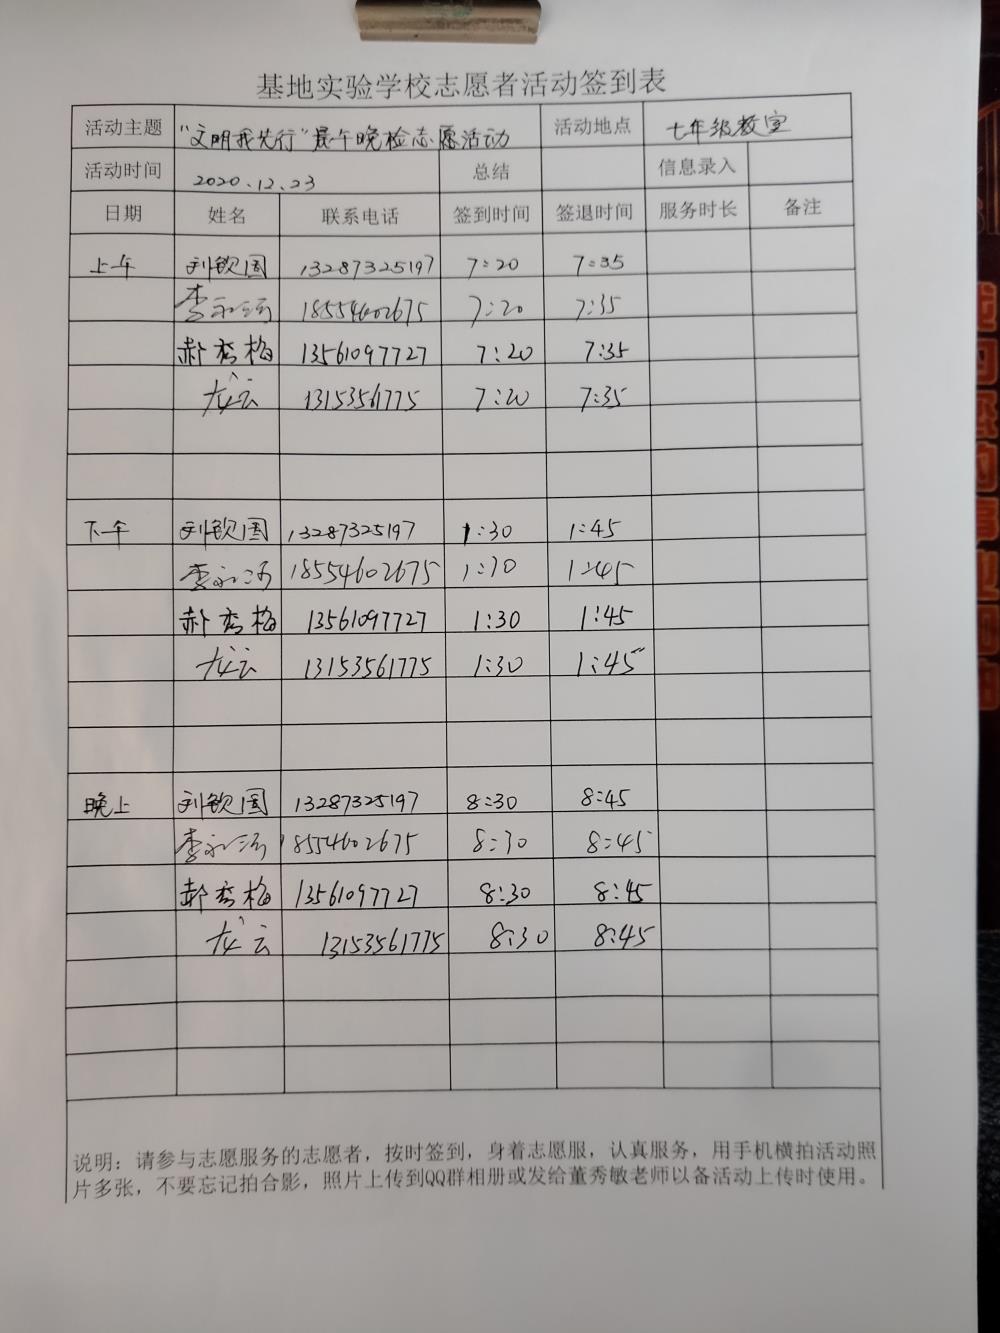 基地实验学校志愿者活动签到表
活动主题 "文明我先行"晨午晚检志愿活动 活动地点 七年级教室
活动时间 2020.12.23 总结 信息录入
日期 姓名 联系电话 签到时间 签退时间 服务时长 备注
上午 刘钦国 13287325197 7:20 7:35
李永 18554602675 7:20 7:35
郝秀梅 13561097727 7:20 7:35
龙云 13153561775 7:20 7:35
下午 刘钦国 13287325197 1:30 1:45
李永 18554602675 1:30 1:45
郝秀梅 13561097727 1:30 1:45
龙云 13153561775 1:30 1:45
晚上 刘钦国 13287325197 8:30 8:45
李永 18554602675 8:30 8:45
郝秀梅 13561097727 8:30 8:45
龙云 13153561775 8:30 8:45
说明：请参与志愿服务的志愿者，按时签到，身着志愿服，认真服务，用手机横拍活动照
片多张，不要忘记拍合影，照片上传到QQ群相册或发给董秀敏老师以备活动上传时使用。